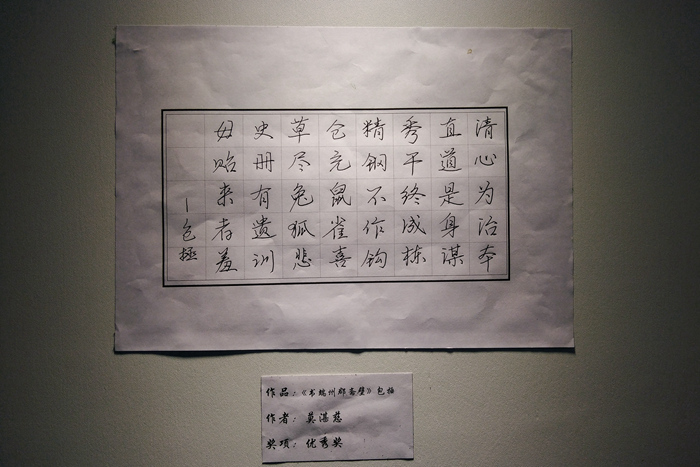 清心为治本
直道是身谋
秀干终成栋
精钢不作钩
仓充鼠雀喜
草尽兔狐悲
史册有遗训
毋贻来者羞
—包拯
作品：《书端州郡斋壁》包拯
作者：莫湛慈
奖项：优秀奖